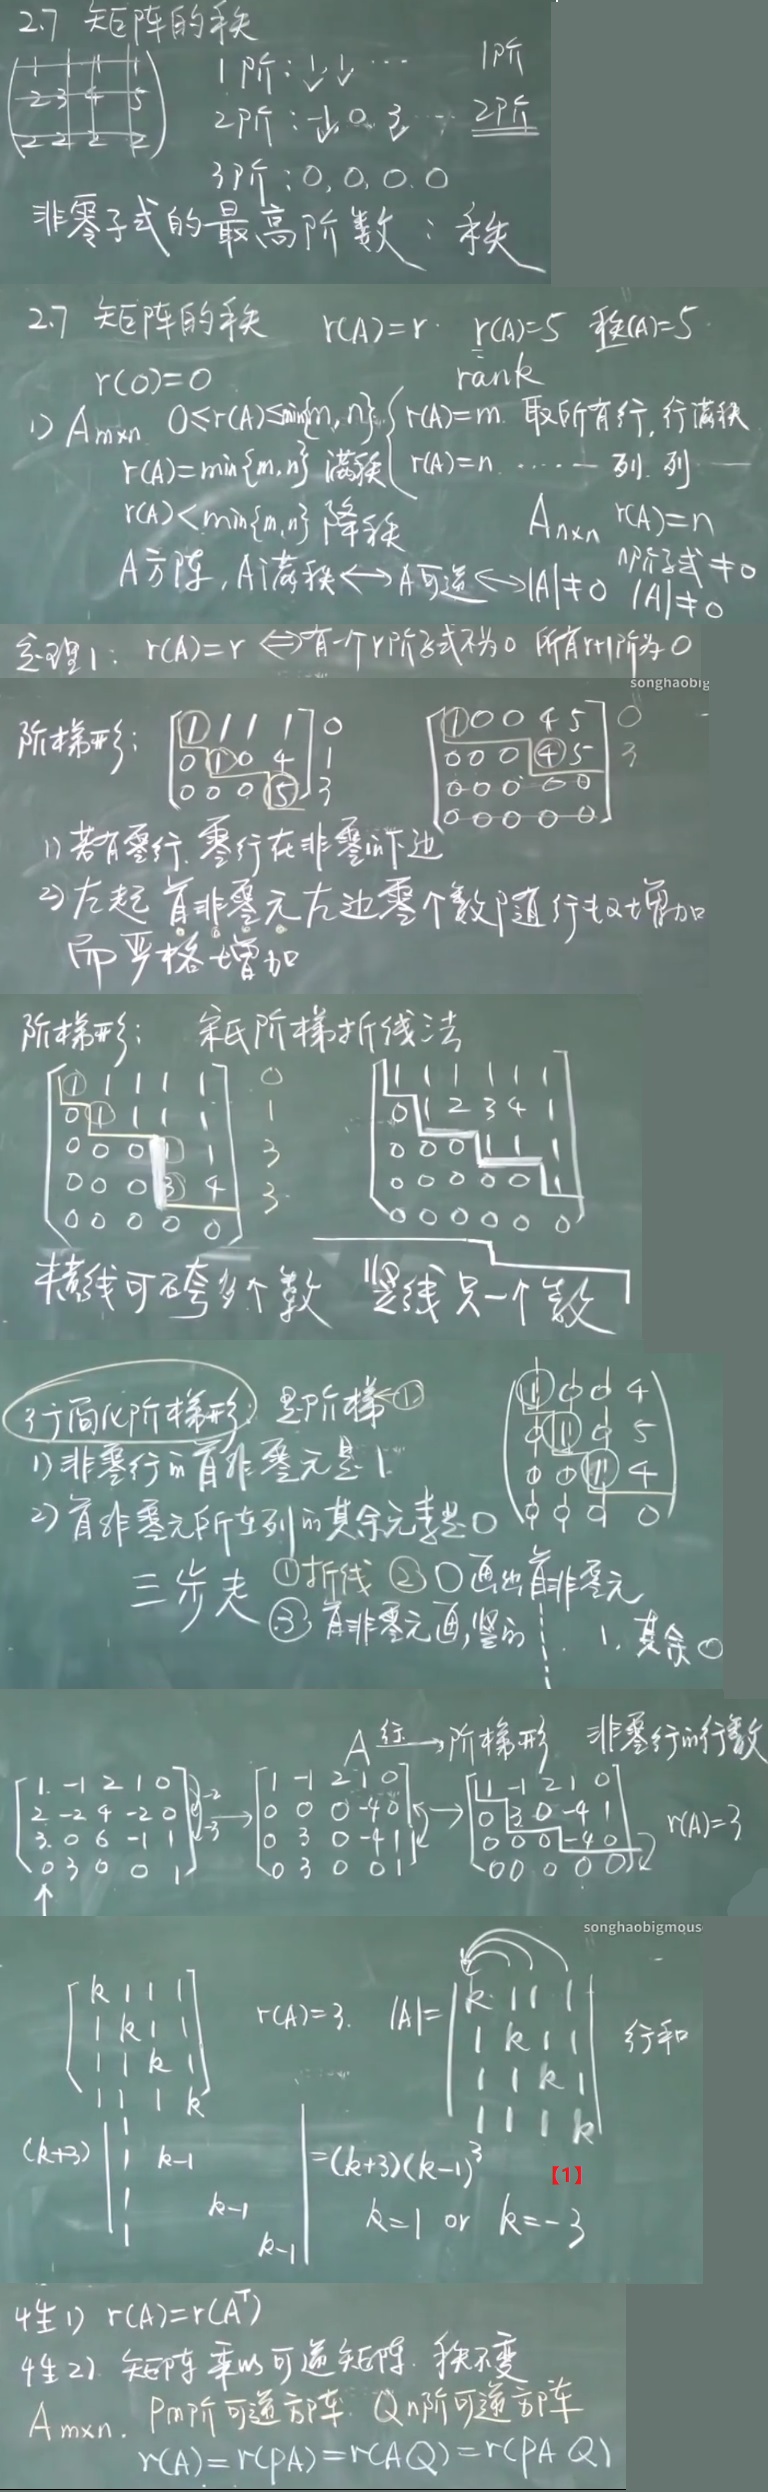 2.7 矩阵的秩
1 1 1 1
2 3 4 5
2 2 2 2
1阶: ↓ ↓ ⋯ 1阶
2阶: ↓ 0. 3 ⋯ 2阶
3阶: 0, 0, 0. 0
非零子式的最高阶数: 秩
2.7 矩阵的秩 r(A)=r. r(A)=5 秩(A)=5.
r(0)=0 rank
1) Am×n 0≤r(A)≤min{m,n} r(A)=m 取所有行, 行满秩
r(A)=min{m,n} 满秩 r(A)=n ⋯⋯ 列. 列
r(A)<min{m,n} 降秩 An×n r(A)=n
A方阵, A满秩↔A可逆↔|A|≠0 n阶子式≠0
|A|≠0
定理1: r(A)=r ⇔有一个r阶子式不为0 所有r+1阶为0
songhaobig
阶梯形:
1 1 1 1 0
0 1 0 4 1
0 0 0 5 3
1 0 0 4 5 0
0 0 0 4 5 3
0 0 0 0 0
0 0 0 0 0
1) 若有零行. 零行在非零的下边
2) 左起首非零元左边零个数随行数增加
而严格增加
阶梯形: 宋氏阶梯折线法
1 1 1 1 1 0
0 1 1 1 1 1
0 0 0 1 1 3
0 0 0 3 4 3
0 0 0 0 0
1 1 1 1 1 1
0 1 2 3 4 1
0 0 0 1 1 1
0 0 0 0 0 1
0 0 0 0 0 0
横线可跨多个数 竖线只一个数
行简化阶梯形: 是阶梯←①
1) 非零行的首非零元是1.
2) 首非零元所在列的其余元素是0
1 0 0 4
0 1 0 5
0 0 1 4
0 0 0 0
三步走 ①折线 ②○画出首非零元
③ 首非零元画竖的 1. 其余0
A 行→阶梯形 非零行的行数
1 -1 2 1 0
2 -2 4 -2 0
3 0 6 -1 1
0 3 0 0 1
-2
-3
1 -1 2 1 0
0 0 0 -4 0
0 3 0 -4 1
0 3 0 0 1
1 -1 2 1 0
0 3 0 -4 1
0 0 0 -4 0
0 0 0 0 0
r(A)=3
songhaobigmous
k 1 1 1
1 k 1 1
1 1 k 1
1 1 1 k
r(A)=3. |A|=
k 1 1 1
1 k 1 1
1 1 k 1
1 1 1 k
行和
(k+3)
1
1 k-1
1 k-1
1 k-1
=(k+3)(k-1)³
【1】
k=1 or k=-3
性1) r(A)=r(Aᵀ)
性2). 矩阵乘以可逆矩阵. 秩不变
Am×n. Pm阶可逆方阵. Qn阶可逆方阵
r(A)=r(PA)=r(AQ)=r(PAQ)